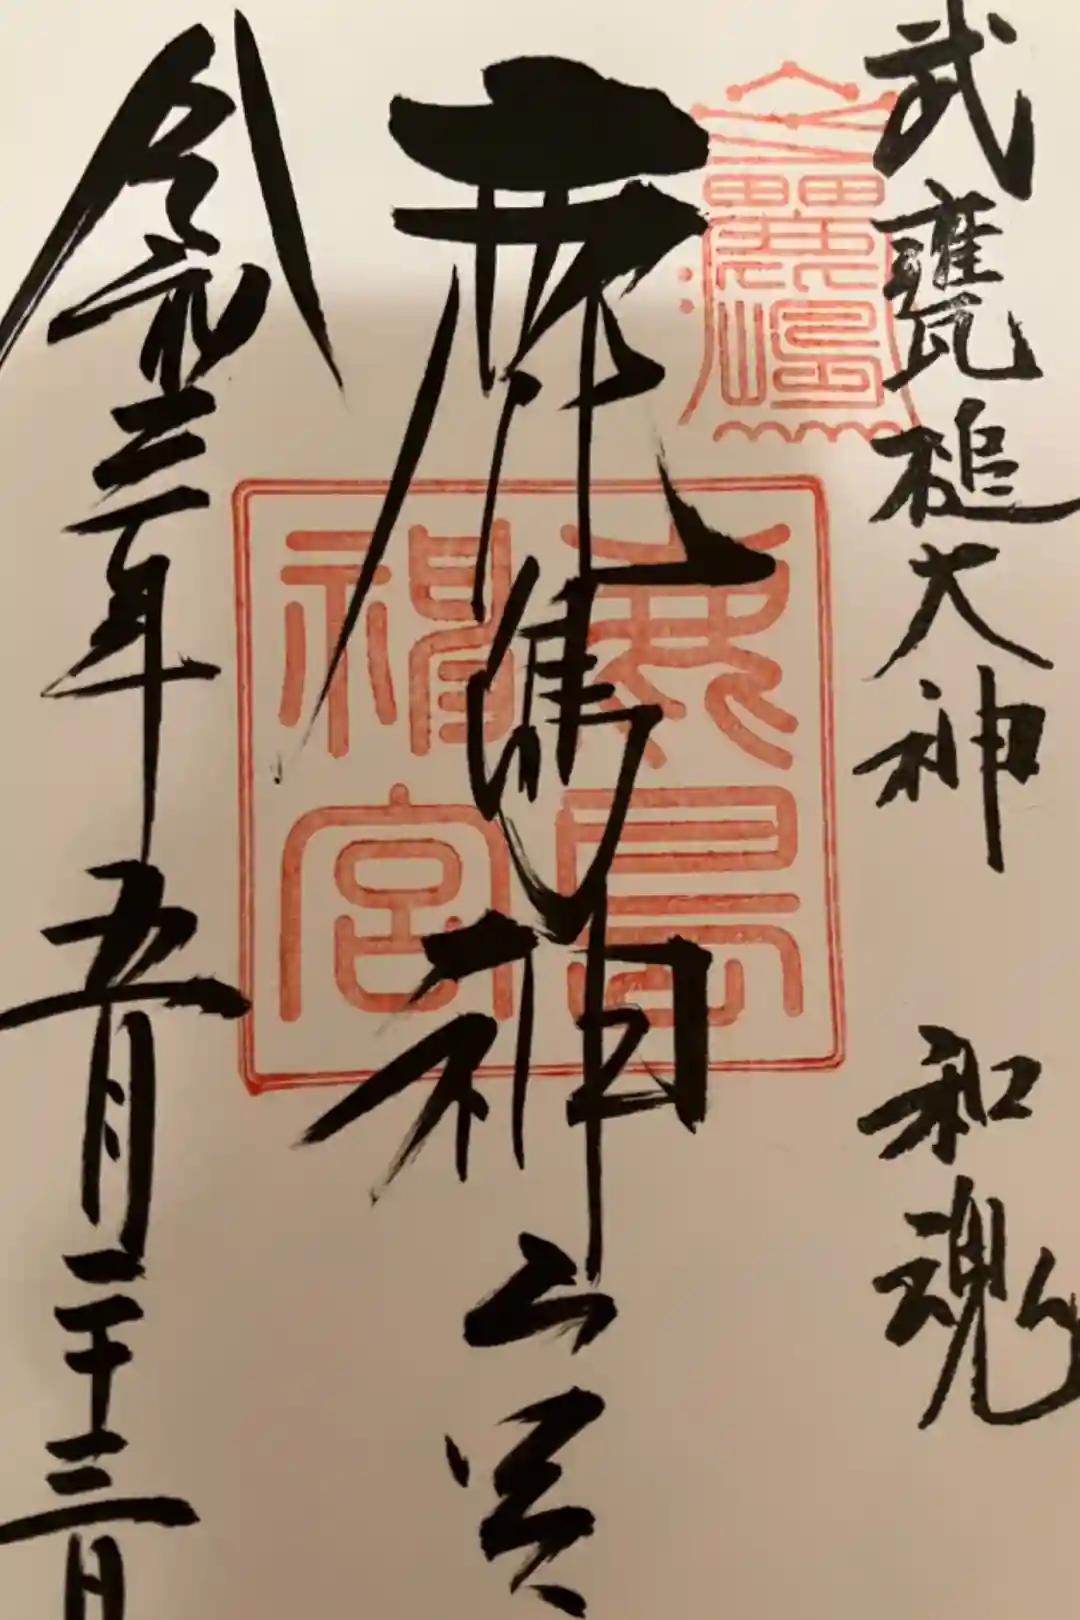 武甕槌大神　和魂
鹿島神宮
鹿島神宮
令和三年五月二十三日